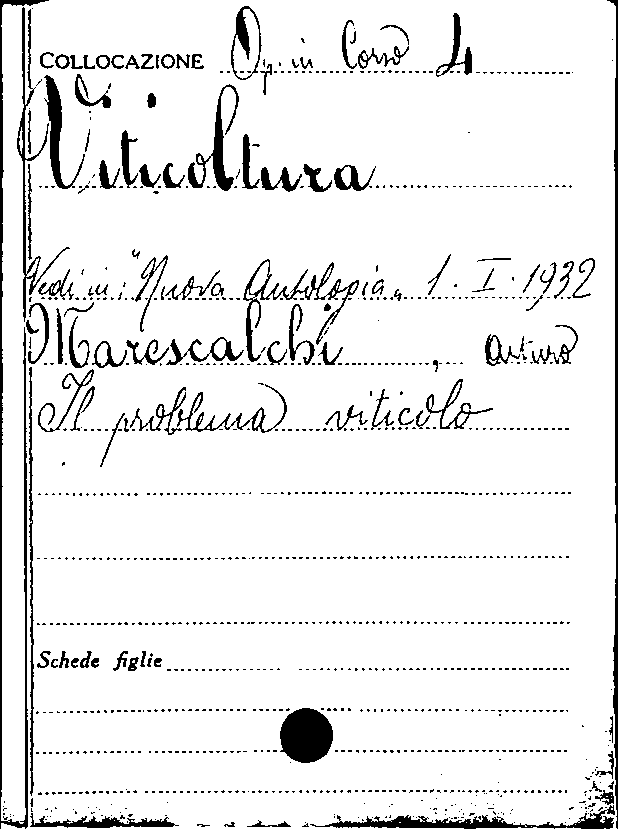 COLLOCAZIONE Op. in Corso 4
Viticoltura
Vedi in: "Nuova Antologia„ 1. I. 1932
Marescalchi, Arturo
Il problema viticolo
Schede figlie